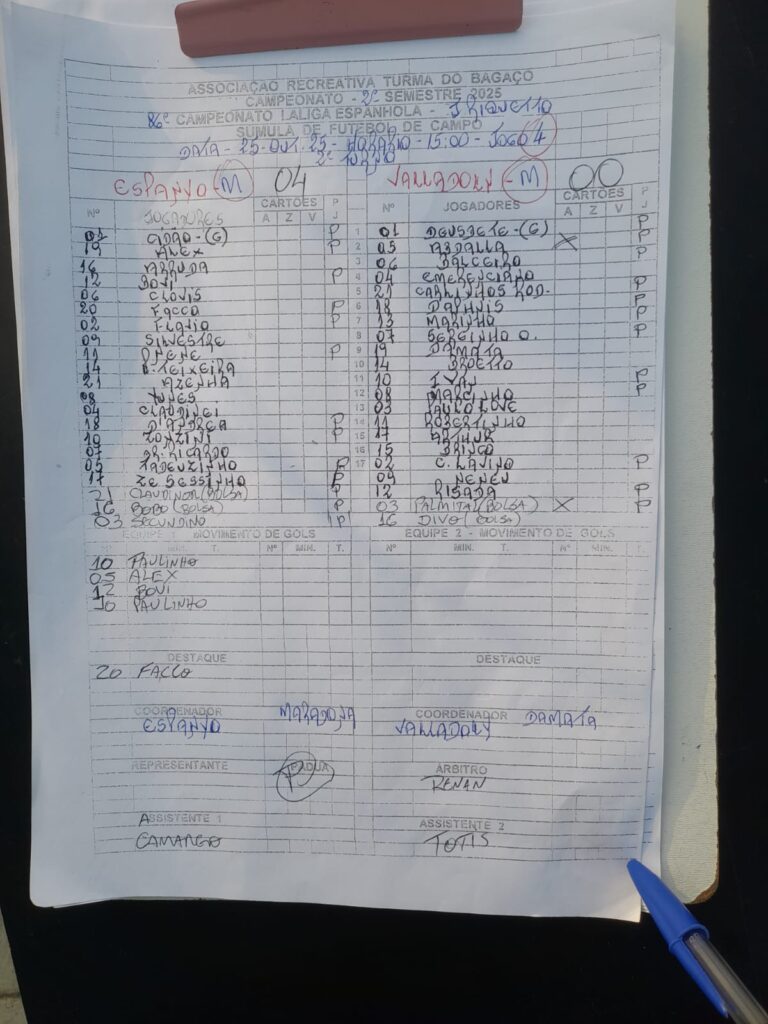 ASSOCIAÇÃO RECREATIVA TURMA DO BAGAÇO
CAMPEONATO - 2º SEMESTRE 2025
86º CAMPEONATO LALIGA ESPANHOLA - J. RIQUETTO
SUMULA DE FUTEBOL DE CAMPO
DATA - 25-OUT. 25 - HORARIO - 15:00 - JOGO 4
2º TURNO
ESPANYO - M 04 VALLADOLY - M 00
Nº JOGADORES CARTÕES A Z V P J Nº JOGADORES CARTÕES A Z V P J
01 ADÃO - (G) P 1 01 DEUSDETE - (G) P
19 ALEX P 2 05 ABDALLA X P
16 ARRUDA 3 06 BALCEIRO
12 BOVI P 4 04 EMERENCIANO P
06 CLOVIS 5 21 CARLINHOS ROD. P
20 FACCO P 6 18 DAPHNIS P
02 FLAVIO P 7 13 MARINHO P
09 SILVESTRE 8 07 SERGINHO O. P
11 P 9 19 DAMATA P
14 B. TEIXEIRA 10 14
21 AZENHA 11 10 IVAN P
08 YUNES 12 08 MARCINHO P
04 CLAUDINEI 13 03 PAULO LOVE
18 D'ANDREA P 14 11 ROBERTINHO P
10 ZONZINI P 15 17 ARTHUR P
07 DR. RICARDO 16 15 BRINCO
05 TADEUZINHO P 17 02 C. LAVINO P
17 ZE SESSINHO P 09 NENEU
21 CLAUDINOR (BOLSA) P 12 RISADA P
16 BOBO (BOLSA) P 03 PALMITAL (BOLSA) X P
03 SECUNDINO P 16 DIVO (BOLSA)
EQUIPE 1 - MOVIMENTO DE GOLS EQUIPE 2 - MOVIMENTO DE GOLS
MIN. T. Nº MIN. T. Nº MIN. T. Nº MIN. T.
10 PAULINHO
05 ALEX
12 BOVI
10 PAULINHO
DESTAQUE DESTAQUE
20 FACCO
COORDENADOR MARADONA COORDENADOR DAMATA
ESPANYO VALLADOLY
REPRESENTANTE PADUA ARBITRO
RENAN
ASSISTENTE 1 ASSISTENTE 2
CAMARGO TOTIS